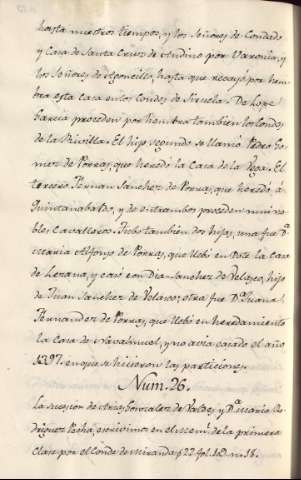 hasta nuestros tiempos, y los Señores de Condado
y Casa de Santa Cruz de Andino por Varonia, y
los Señores de Agoncillo, hasta que recayó por hem
bra esta Casa en los Condes de Siruela. De Lope
Garcia proceden por hembra tambien los Condes
de la Rivilla. El hijo segundo se llamó Pedro Go
mez de Porras, que heredó la Casa de la Vega. El
tercero Fernan Sanchez de Porras, que heredó á
Quintanabaldo, y de entrambos proceden mui no
bles Cavalleros. Tubo tambien dos hijas, una fue Dª
Maria Alfonso de Porras, que llebó en Dote la Casa
de Lezana, y casó con Dia-Sanchez de Velasco, hijo
de Juan Sanchez de Velasco; otra fue Dª Juana
Fernandez de Porras, que llebó en heredamiento
la Casa de Navahunuel, y no avia casado el año
1397. en que se hicieron las particiones.
Num. 26.
La sucesion de Arias Gonzalez de Valdes y Dª Maria Ro
driguez Peña, escrivimos en el mem.l de la primera
Clase por el Conde de Miranda § 22 fol. n. 18.